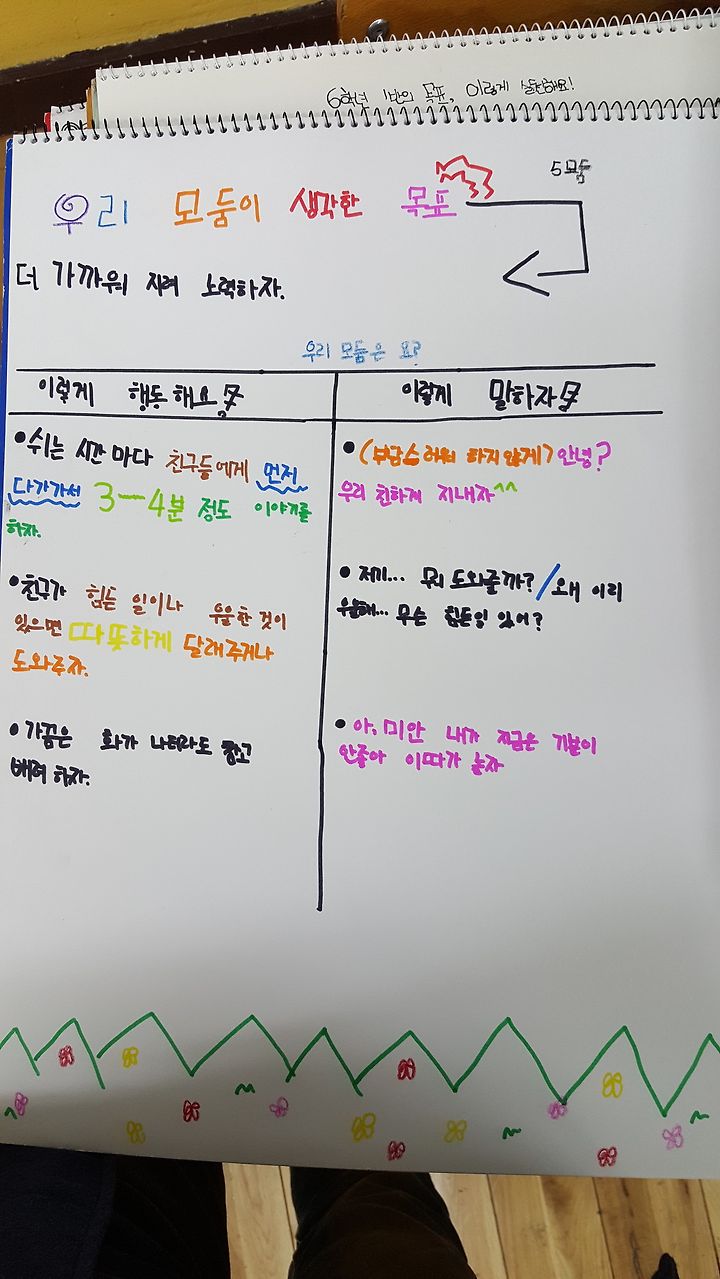 6학년 1반의 목표, 이렇게 실천해요!
5모둠
우리 모둠이 생각한 목표
더 가까워 지려 노력하자.
우리 모둠은 요?
이렇게 행동해요
이렇게 말하자
•쉬는 시간 마다 친구들에게 먼저
다가가서 3-4분 정도 이야기를
하자.
•친구가 힘든 일이나 우울한 것이
있으면 따뜻하게 달래주거나
도와주자.
•가끔은 화가 나더라도 참고
배려 하자.
•(부담스러워 하지 않게) 안녕?
우리 친하게 지내자^^
•저기... 뭐 도와줄까?/왜 이리
우울해... 무슨 힘든일 있어?
•아, 미안 내가 지금은 기분이
안좋아 이따가 놀자